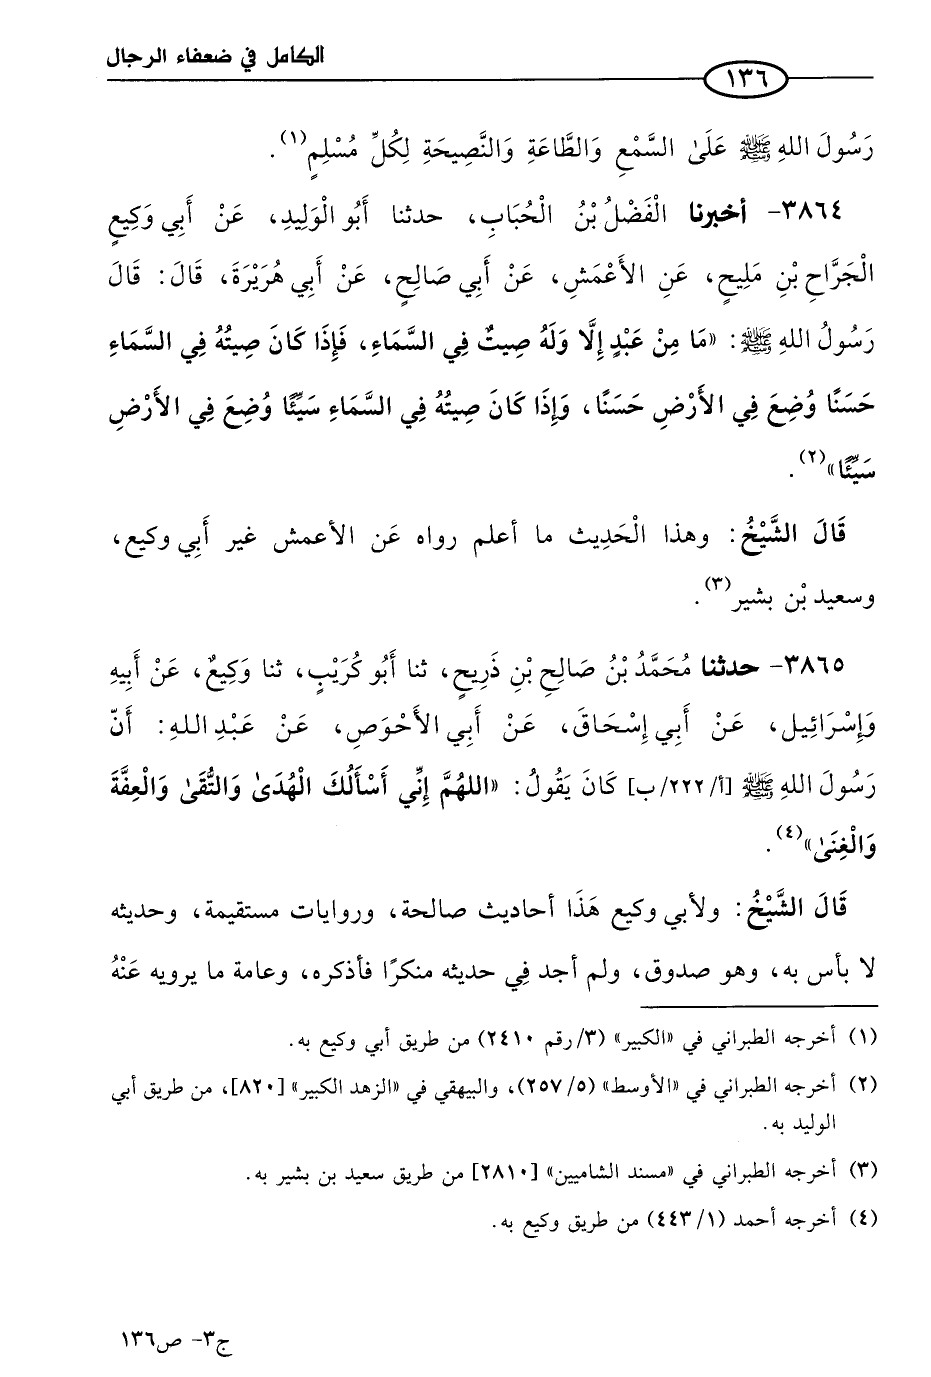 الكامل في ضعفاء الرجال
١٣٦
رَسُولَ اللهِ ﷺ عَلَىٰ السَّمْعِ وَالطَّاعَةِ وَالنَّصِيحَةِ لِكُلِّ مُسْلِمٍ(١).
٣٨٦٤- أخبرنا الْفَضْلُ بْنُ الْحُبَابِ، حدثنا أَبُو الْوَلِيدِ، عَنْ أَبِي وَكِيعٍ
الْجَرَّاحِ بْنِ مَلِيحٍ، عَنِ الأَعْمَشِ، عَنْ أَبِي صَالِحٍ، عَنْ أَبِي هُرَيْرَةَ، قَالَ: قَالَ
رَسُولُ اللهِ ﷺ: «مَا مِنْ عَبْدٍ إِلَّا وَلَهُ صِيتٌ فِي السَّمَاءِ، فَإِذَا كَانَ صِيتُهُ فِي السَّمَاءِ
حَسَنًا وُضِعَ فِي الأَرْضِ حَسَنًا، وَإِذَا كَانَ صِيتُهُ فِي السَّمَاءِ سَيِّئًا وُضِعَ فِي الأَرْضِ
سَيِّئًا»(٢).
قَالَ الشَّيْخُ: وهذا الْحَدِيث ما أعلم رواه عَن الأعمش غير أَبِي وكيع،
وسعيد بْن بشير(٣).
٣٨٦٥- حدثنا مُحَمَّدُ بْنُ صَالِحِ بْنِ ذَرِيحٍ، ثنا أَبُو كُرَيْبٍ، ثنا وَكِيعٌ، عَنْ أَبِيهِ
وَإِسْرَائِيل، عَنْ أَبِي إِسْحَاقَ، عَنْ أَبِي الأَحْوَصِ، عَنْ عَبْدِ اللهِ: أَنّ
رَسُولَ اللهِ ﷺ [أ/٢٢٢/ب] كَانَ يَقُولُ: «اللهُمَّ إِنِّي أَسْأَلُكَ الْهُدَىٰ وَالتُّقَىٰ وَالْعِفَّةَ
وَالْغِنَىٰ»(٤).
قَالَ الشَّيْخُ: ولأبي وكيع هَذَا أحاديث صالحة، وروايات مستقيمة، وحديثه
لا بأس به، وهو صدوق، ولم أجد فِي حديثه منكرًا فأذكره، وعامة ما يرويه عَنْهُ
(١) أخرجه الطبراني في «الكبير» (٣/ رقم ٢٤١٠) من طريق أبي وكيع به.
(٢) أخرجه الطبراني في «الأوسط» (٢٥٧/٥)، والبيهقي في «الزهد الكبير» [٨٢٠]، من طريق أبي
الوليد به.
(٣) أخرجه الطبراني في «مسند الشاميين» [٢٨١٠] من طريق سعيد بن بشير به.
(٤) أخرجه أحمد (٤٤٣/١) من طريق وكيع به.
ج٣- ص١٣٦